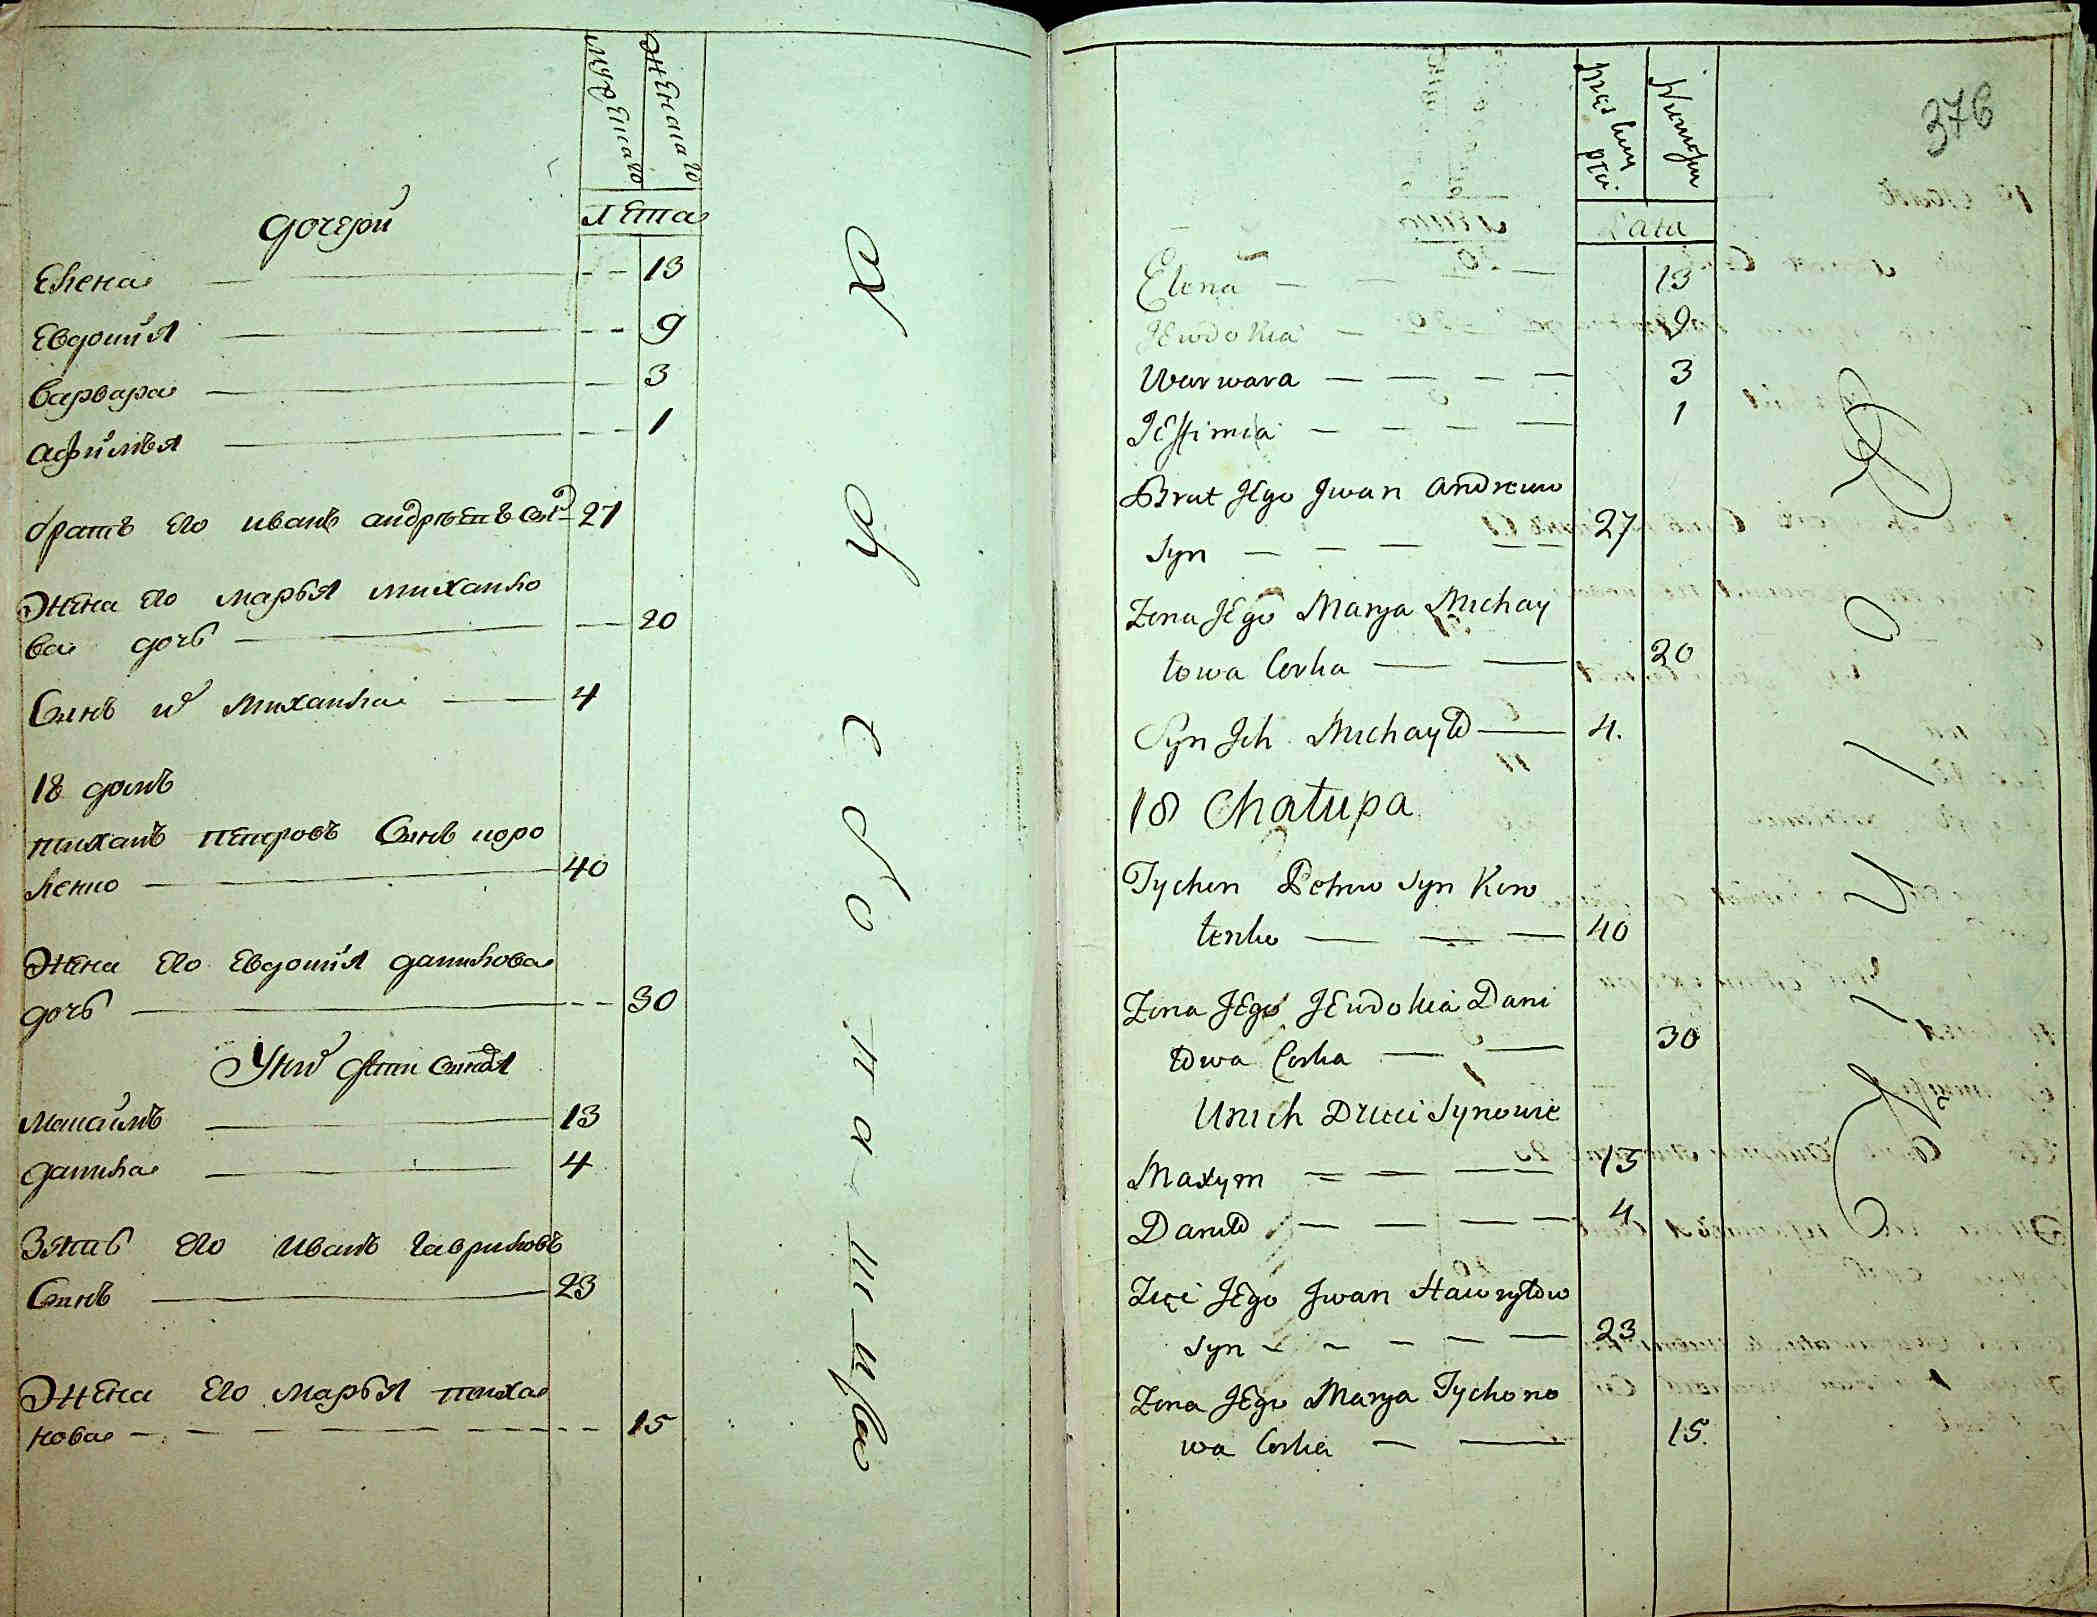 мужеска
женска
Лета
дочери
Елена 13
Евдокия 9
варвара 3
афимья 1
братъ его иванъ андреевъ сынъ 27
жена его марья михайло
ва дочь 20
Сынъ их михайла 4
18 домъ
тиханъ петровъ Сынъ коро
ленко 40
жена его Евдокия данилова
дочь 30
У них дети сыновя
Максимъ 13
данила 4
Зять его иванъ гавриловъ
Сынъ 23
жена его марья тиха
нова 15
376
Lata
Elena 13
JEwdokia 9
Warwara 3
JEffimia 1
Brat JEgo Jwan Andreiew
Syn 27
Zona JEgo Marya Michay
łowa Corka 20
Syn Jch Michayło 4.
18 Chałupa
Tychon Petrow Syn Koro
lenko 40
Zona JEgo JEwdokia Dani
łowa Corka 30
Unich Dzieci Synowie
Maxym 13
Daniło 4
Zięć JEgo Jwan Hawryłow
Syn 23
Zona JEgo Marya Tychono
wa Corka 15.